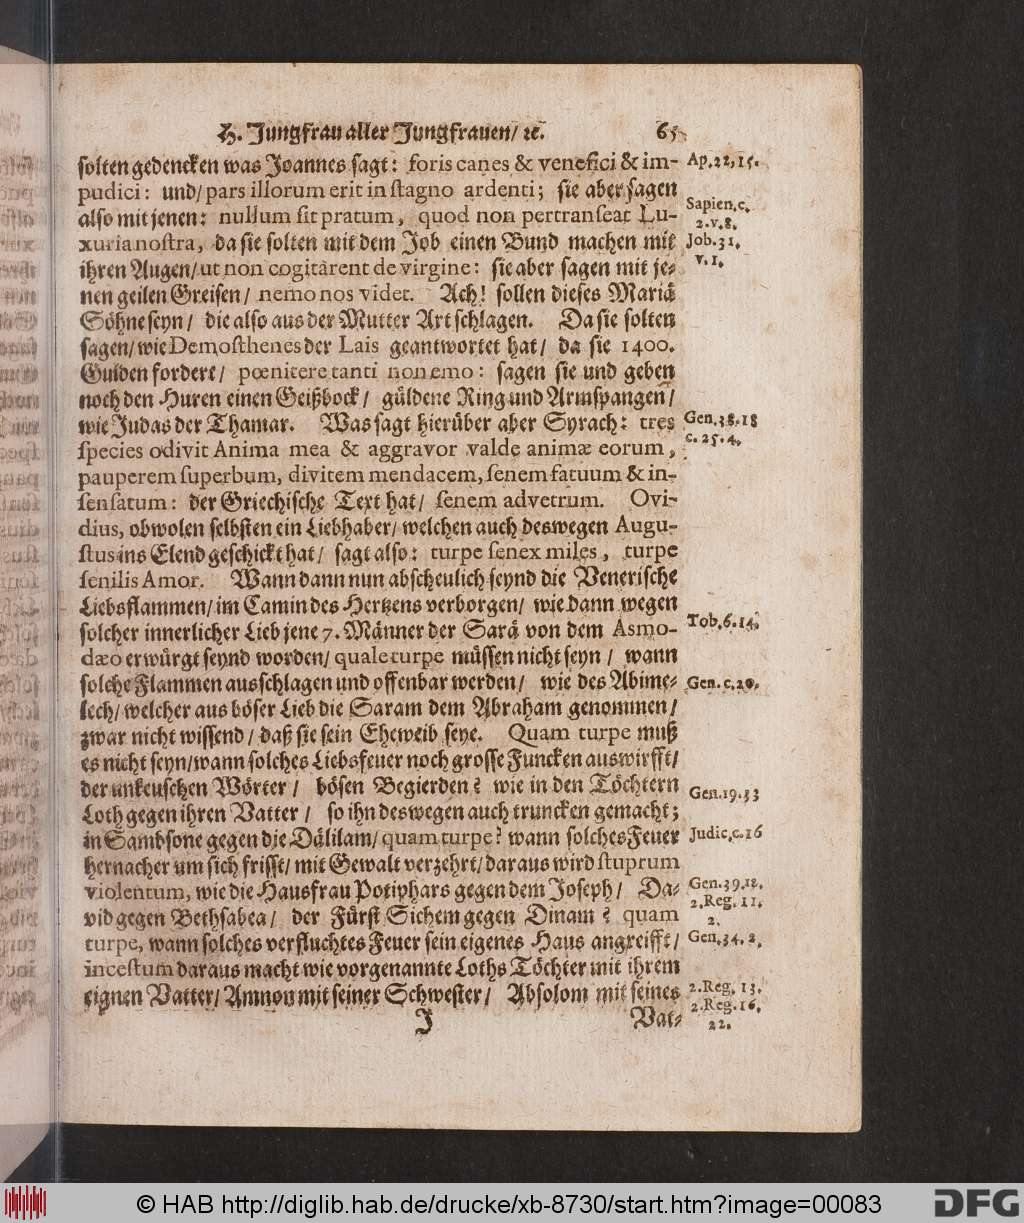 H. Jungfrau aller Jungfrauen/ ꝛc. 65
solten gedencken was Joannes sagt: foris canes & venefici & im- Ap.22,15.
pudici: und/ pars illorum erit in stagno ardenti; sie aber sagen
also mit jenen: nullum sit pratum, quod non pertranseat Lu- Sapien.c. 2.v.8.
xuria nostra, da sie solten mit dem Job einen Bund machen mit Job.31.
ihren Augen/ ut non cogitarent de virgine: sie aber sagen mit je- v.1.
nen geilen Greisen/ nemo nos videt. Ach! sollen dieses Mariå
Söhne seyn/ die also aus der Mutter Art schlagen. Da sie solten
sagen/ wie Demosthenes der Lais geantwortet hat/ da sie 1400.
Gulden fordert/ pœnitere tanti non emo: sagen sie und geben
noch den Huren einen Geißbock/ güldene Ring und Armspangen/
wie Judas der Thamar. Was sagt hierüber aber Syrach: tres Gen.38.18
species odivit Anima mea & aggravor valde animæ eorum, c.25.4.
pauperem superbum, divitem mendacem, senem fatuum & in-
sensatum: der Griechische Text hat/ senem advetrum. Ovi-
dius, obwolen selbsten ein Liebhaber/ welchen auch deswegen Augu-
stus ins Elend geschickt hat/ sagt also: turpe senex miles, turpe
senilis Amor. Wann dann nun abscheulich seynd die Venerische
Liebsflammen/ im Camin des Hertzens verborgen/ wie dann wegen
solcher innerlicher Lieb jene 7. Männer der Sarä von dem Asmo- Tob.6.14.
dæo erwürgt seynd worden/ quale turpe müssen nicht seyn/ wann
solche Flammen ausschlagen und offenbar werden/ wie des Abime- Gen.c.20.
lech/ welcher aus böser Lieb die Saram dem Abraham genommen/
zwar nicht wissend/ daß sie sein Eheweib seye. Quam turpe muß
es nicht seyn/ wann solches Liebsfeuer noch grosse Funcken auswirfft/
der unkeuschen Wörter/ bösen Begierden? wie in den Töchtern
Loth gegen ihren Vatter/ so ihn deswegen auch truncken gemacht; Gen.19.33
in Sambsone gegen die Dälilam/ quam turpe? wann solches Feuer Judic.c.16
hernacher um sich frisst/ mit Gewalt verzehrt/ daraus wird stuprum
violentum, wie die Hausfrau Potiphars gegen dem Joseph/ Da- Gen.39.12.
vid gegen Bethsabea/ der Fürst Sichem gegen Dinam? quam 2.Reg. 11. 2.
turpe, wann solches verfluchtes Feuer sein eigenes Haus angreifft/ Gen.34.2.
incestum daraus macht wie vorgenannte Loths Töchter mit ihrem
eignen Vatter/ Amnon mit seiner Schwester/ Absolom mit seines 2.Reg. 13. 2.Reg.16. 22.
J Vat-
© HAB http://diglib.hab.de/drucke/xb-8730/start.htm?image=00083
DFG